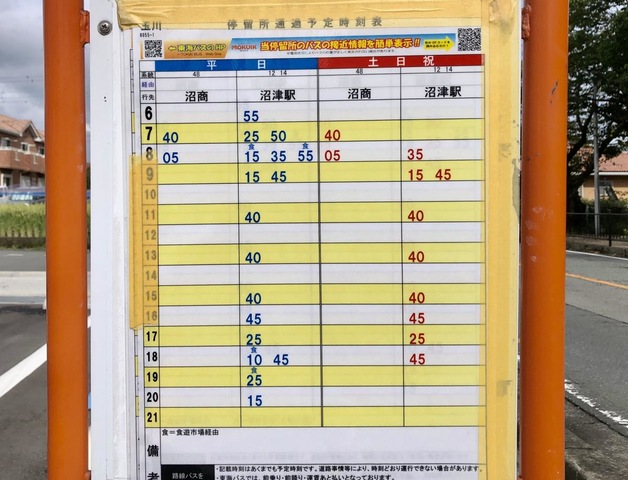 玉川 停留所通過予定時刻表
6055-1
←東海バスのHP MOKUIK 当停留所のバスの接近情報を簡単表示!!
平日 土日祝
系統 48 12 14 48 12 14
経由
行先 沼商 沼津駅 沼商 沼津駅
6 55
7 40 25 50 40
食 食
8 05 15 35 55 05 35
9 15 45 15 45
10
11 40 40
12
13 40 40
14
15 40 40
16 45 45
17 25 25
食
18 10 45 45
食
19 25
20 15
21
備考 食=食遊市場経由
・記載時刻はあくまでも予定時刻です。道路事情等により、時刻どおり運行できない場合があります。
路線バスを ・東海バスでは、前乗り・前降り・運賃あと払いとなっております。